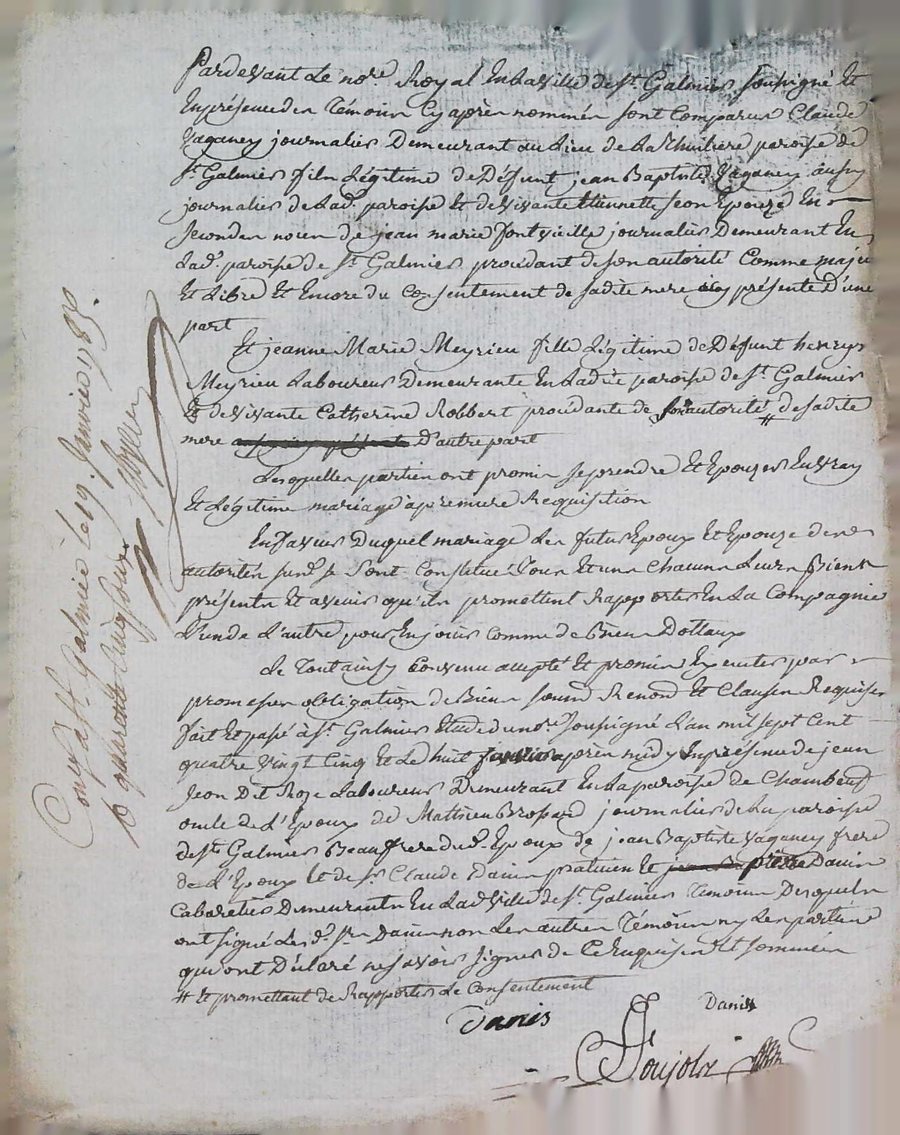 Pardevant Le nore Royal En La Ville de St. Galmier soussigné Et
En présence des Témoins Cy après nommés sont Comparus Claude
Vaganey journalier Demeurant au Lieu de La paroisse de
St. Galmier fils Légitime de Défunt jean Baptiste Vaganey aussy
journalier de Lad. paroisse Et de vivante Etiennette jeon Epouze En
secondes noces de jean marie fontvieille journalier Demeurant En
Lad. paroisse de St. Galmier procédant de son autorité Comme majeur
Et Libre Et Encore du Consentement de sadite mere icy présente D'une
part
Et jeanne Marie Meyrieu fille Légitime de Défunt henrys
Meyrieu Laboureur Demeurante En Ladite paroisse de St. Galmier
Et de vivante Catherine Robbert procédante de son autorité # de sadite
mere D'autre part
Lesquelles parties ont promis se prendre Et Epouzer En vray
Et Légitime mariage à premiere Requisition
En faveur Duquel mariage Les futurs Epoux Et Epouze de mes
autorités susd. se Sont Constitué Tous Et uns Chacuns Leurs Biens
présents Et avenir qu'ils promettent Rapporter En La Compagnie
L'un de L'autre pour En jouir Comme de Biens Dottaux
Le Tout ainsy Convenu accepté Et promis Exécuter par
promesses obligation de Biens soumd Renond Et Clauses Requises
fait Et passé à St. Galmier Etude du nore. soussigné L'an mil sept Cent
quatre Vingt Cinq Et Le huit janvier après midy En présence de jean
Jeon Dit Roze Laboureur Demeurant En La paroisse de Chambeuf
oncle de L'Epoux de Mathieu Brossard journalier de La paroisse
de St. Galmier Beau frere dud. Epoux de jean Baptiste Vaganey frere
de L'Epoux Et de sr. Claude Danis praticien Et pierre Danis
Cabaretier Demeurants En Lad. Ville de St. Galmier Témoins Desquels
ont signé Les d. srs Danis non Les autres Témoins ny Les parties
qui ont Déclaré ne savoir signer de Ce Enquis Et sommés
# Et promettant de Rapporter Le Consentement
Danis
Danis
Poujols
Con a St Galmier le 19. Janvier 1785.
quarante cinq sous